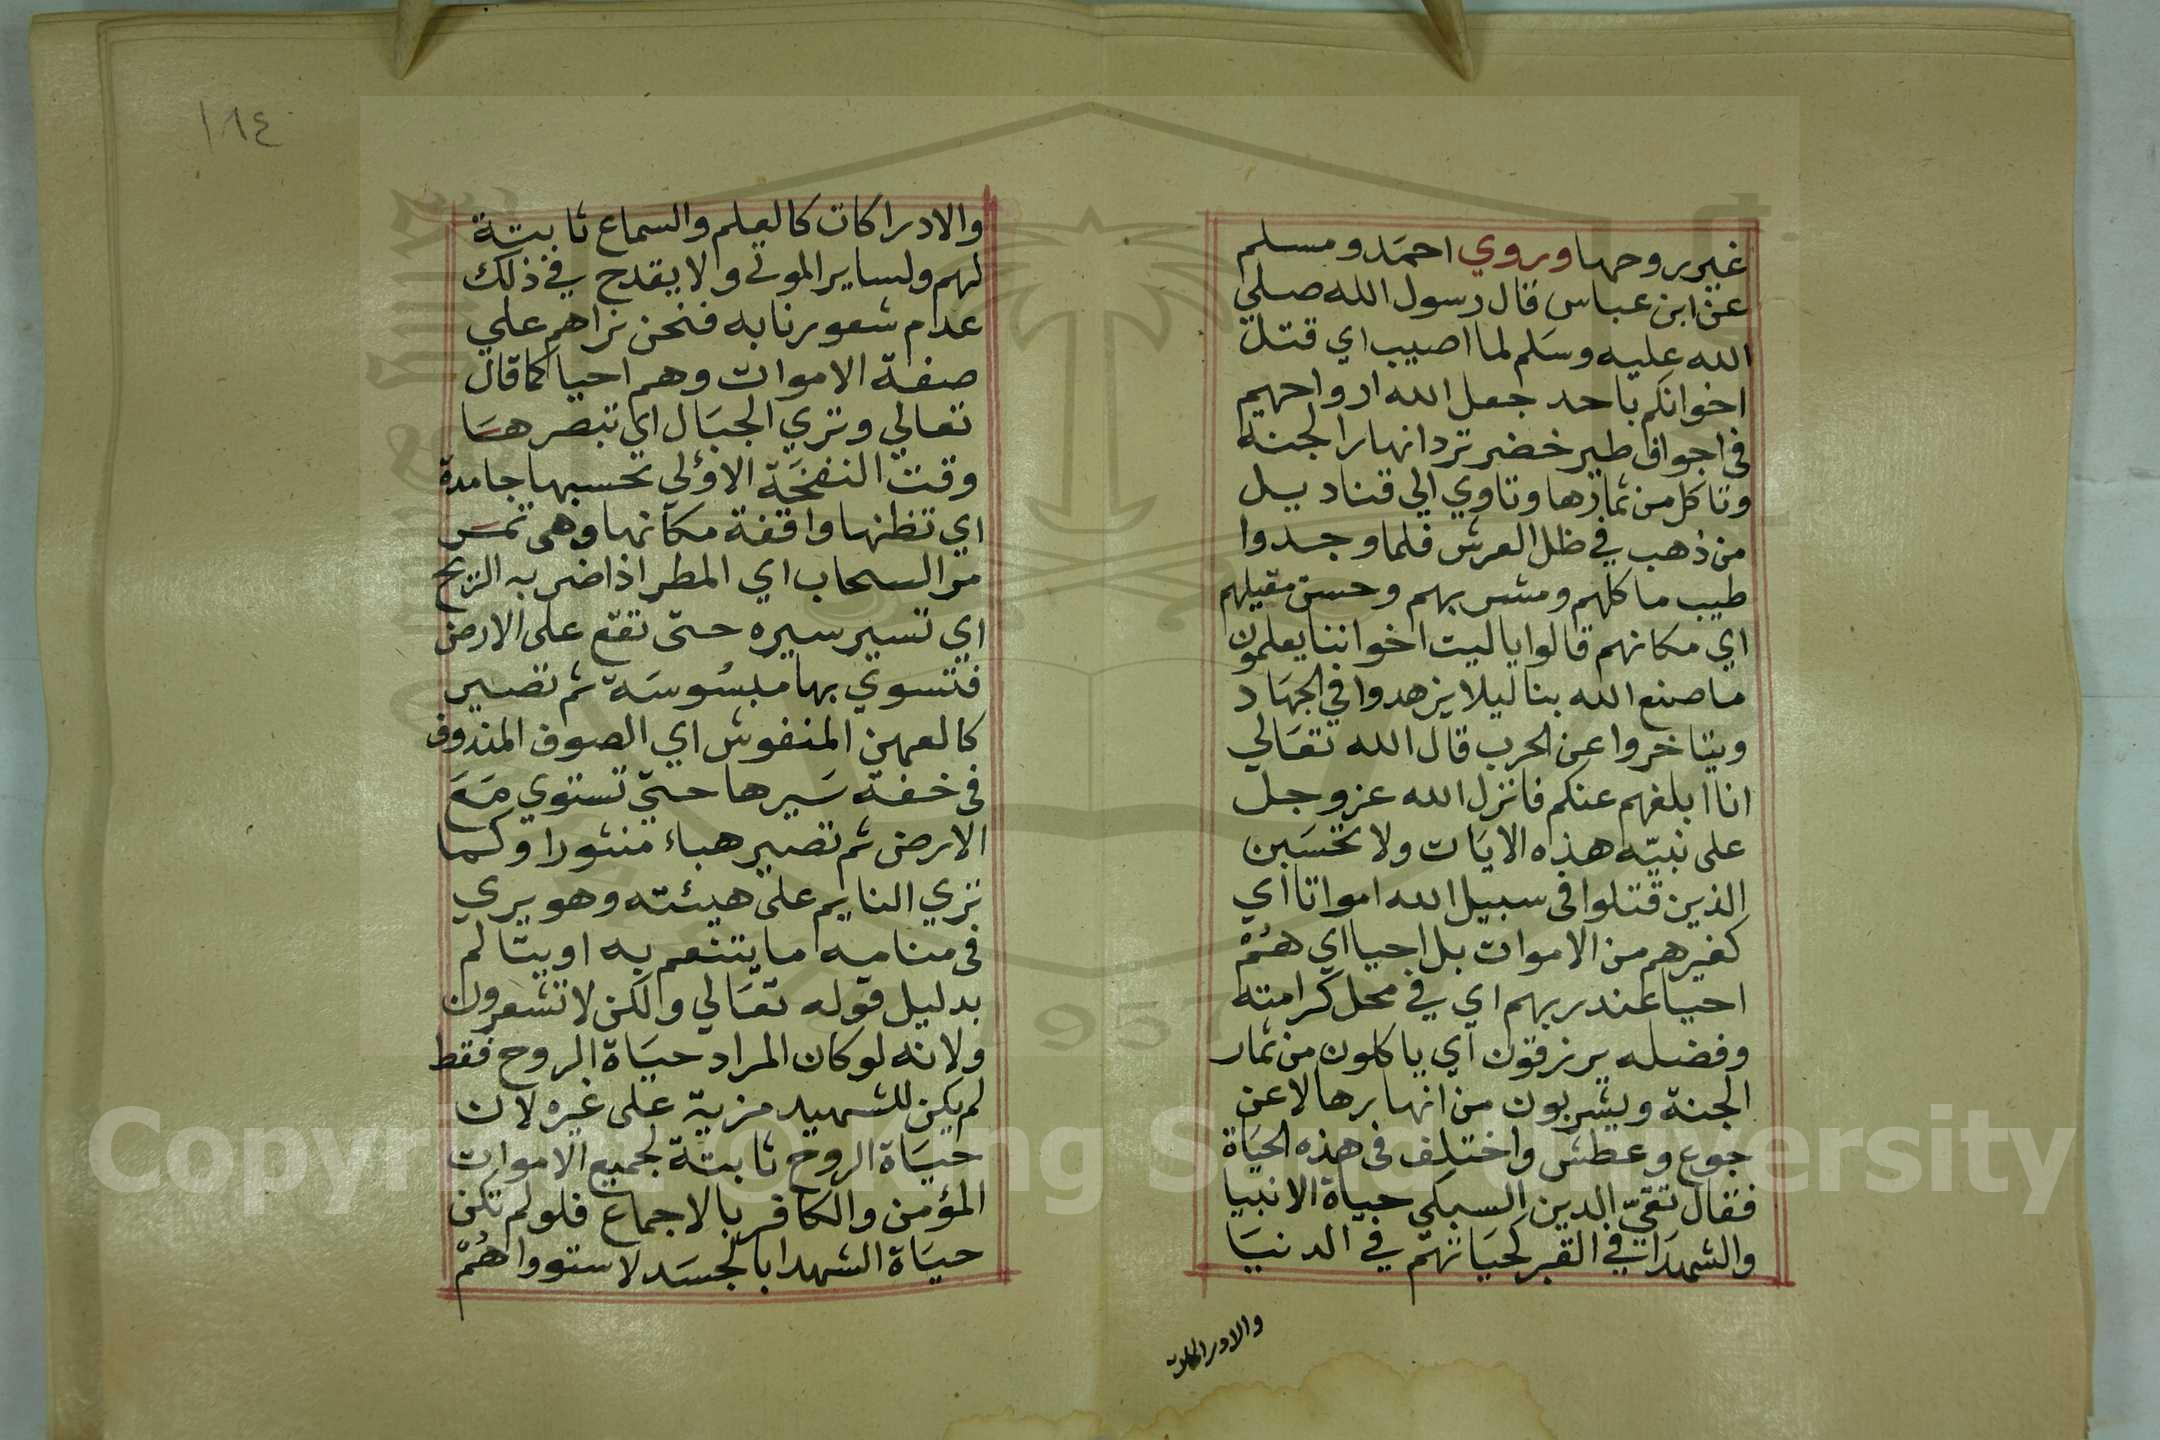 غير روحها وروي احمد ومسلم
عن ابن عباس قال رسول الله صلي
الله عليه وسلم لما اصيب اي قتل
اخوانكم باحد جعل الله ارواحهم
في اجواف طير خضر ترد انهار الجنة
وتاكل من ثمارها وتاوي الي قناديل
من ذهب في ظل العرش فلما وجدوا
طيب ماكلهم ومشربهم وحسن مقيلهم
اي مكانهم قالوا ياليت اخواننا يعلمون
ما صنع الله بنا ليلا يزهدوا في الجهاد
ويتاخروا عن الحرب قال الله تعالي
انا ابلغهم عنكم فانزل الله عز وجل
على نبيّه هذه الايات ولا تحسبن
الذين قتلوا في سبيل الله امواتا اي
كغيرهم من الاموات بل احيا اي همْ
احيا عند ربهم اي في محل كرامته
وفضله يرزقون اي ياكلون من ثمار
الجنة ويشربون من انهارها لا عن
جوع وعطش واختلف في هذه الحياة
فقال تقيّ الدين السبكي حياة الانبيا
والشهدات في القبر كحياتهم في الدنيا
والادراكات
والادراكات كالعلم والسماع ثابتة
لهم ولساير الموتي ولا يقدح في ذلك
عدم شعورنا به فنحن نراهم علي
صفة الاموات وهم احيا كما قال
تعالي وتري الجبال اي تبصرها
وقت النفخة الاولي تحسبها جامدة
اي تظنها واقفة مكانها وهي تمر
مر السحاب اي المطر اذا ضربه الريح
اي تسير سيره حتى تقع على الارض
فتستوي بها مبسُوسَة ثم تصير
كالعهن المنفوش اي الصوف المندوف
في خفة سيرها حتي تستوي مع
الارض ثم تصير هباء منثورا وكما
نري النايم على هيئته وهو يري
في منامه ما يتنعم به او يتالم
بدليل قوله تعالي ولكن لا تشعرون
ولانه لو كان المراد حياة الروح فقط
لم يكن للشهيد مزية على غيره لان
حياة الروح ثابتة لجميع الاموات
المؤمن والكافر بالاجماع فلو لم تكن
حياة الشهدا بالجسد لاستووا هُمْ
١٨٤
Copyright © King Saud University
1957